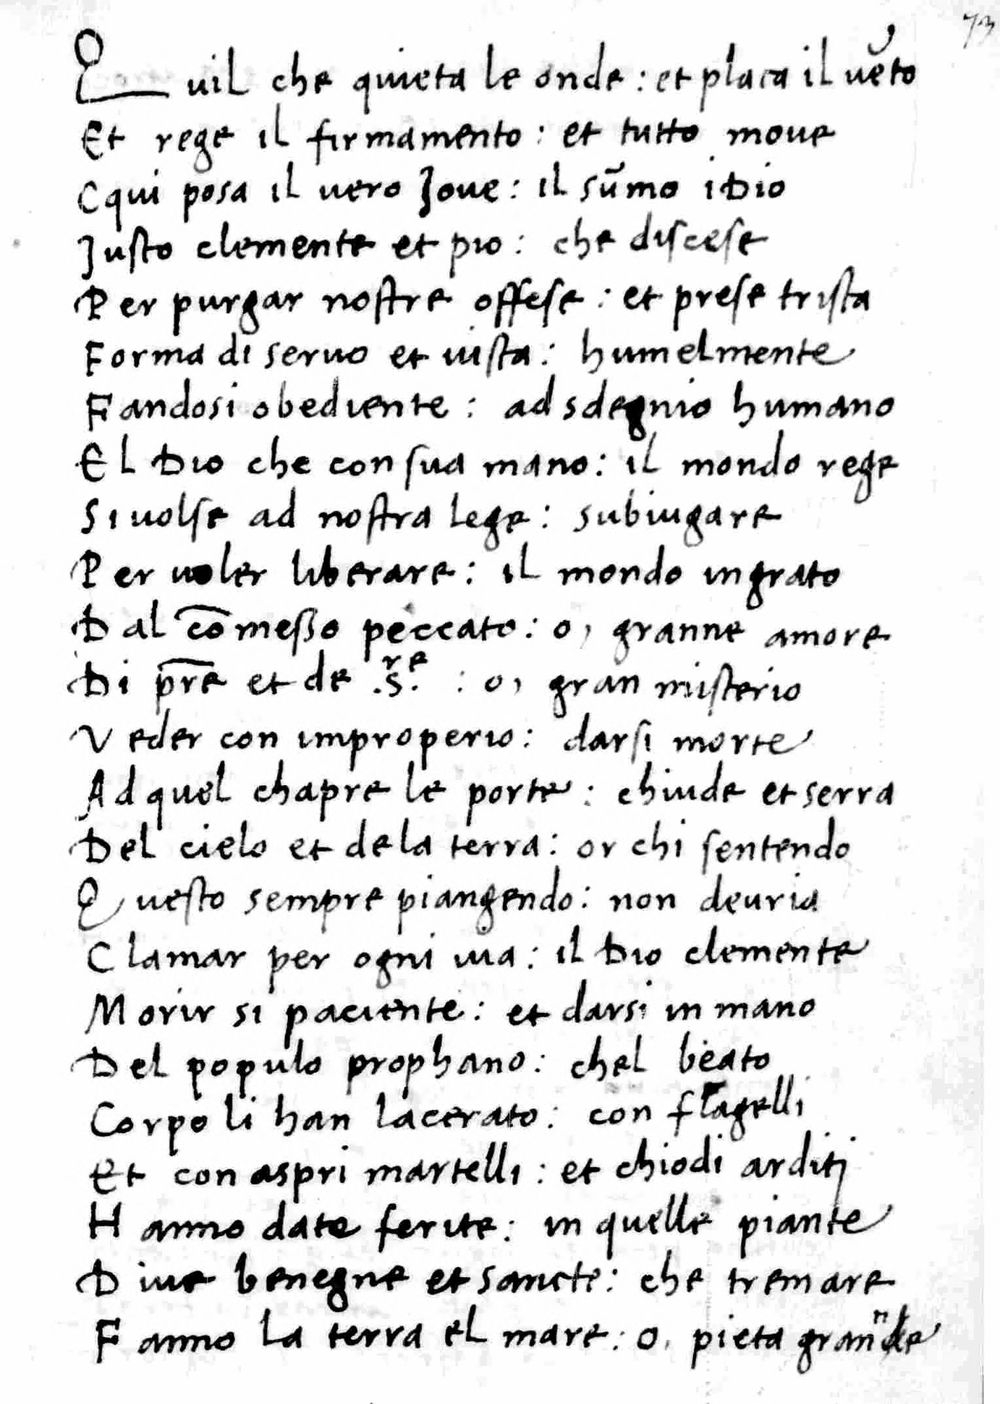 73
Quil che quieta le onde : et placa il vēto
Et rege il firmamento : et tutto move
C qui posa il vero Jove : il sūmo iDio
Justo clemente et pio : che discese
Per purgar nostre offese : et prese trista
Forma di servo et vista : humelmente
Fandosi obediente : ad sdegnio humano
El Dio che con sua mano : il mondo rege
Si volse ad nostra lege : subiugare
Per voler liberare : il mondo ingrato
Dal cōmesso peccato : o, granne amore
Di pr̄e et de .s.re : o, gran misterio
Veder con improperio : darsi morte
Ad quel chapre le porte : chiude et serra
Del cielo et de la terra : or chi sentendo
Questo sempre piangendo : non devria
Clamar per ogni via : il Dio clemente
Morir si paciente : et darsi in mano
Del populo prophano : chel beato
Corpo li han lacerato : con flagelli
Et con aspri martelli : et chiodi arditj
Hanno date ferite : in quelle piante
Dive benegne et sancte : che tremare
Fanno la terra el mare : o, pieta granne